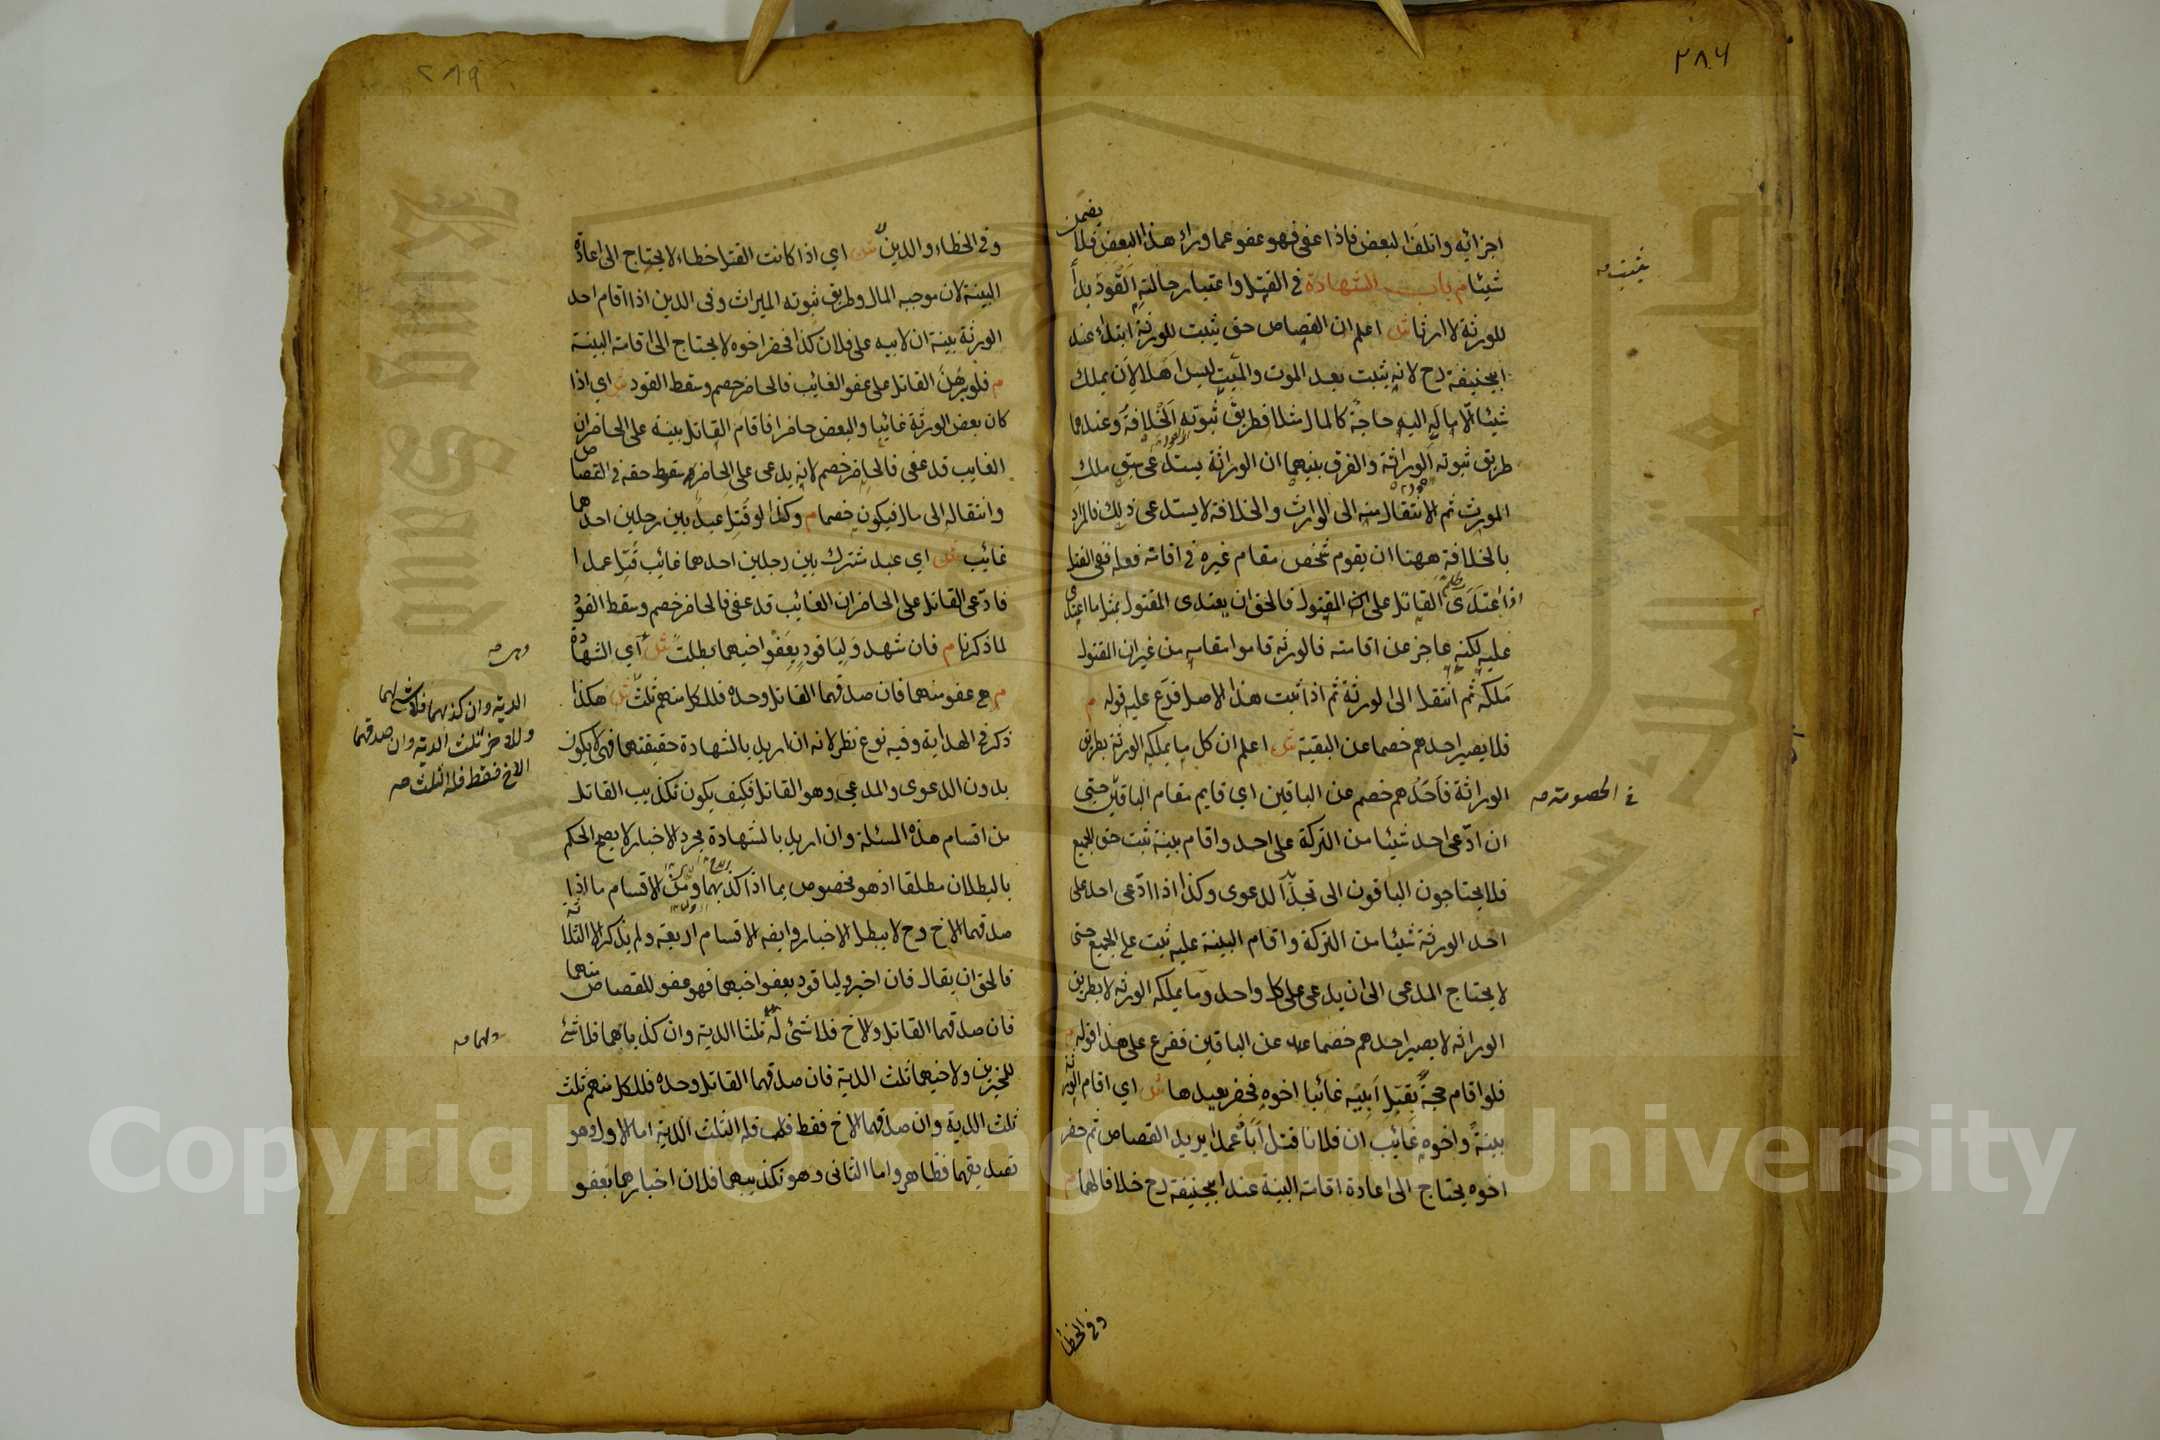 ٢٨٦
اجزائه واتلف البعض فاذا عفى فهو عفو عما وراء هذا البعض فلا يضمن
شيئا م باب الشهادة في القتل واعتبار حالته القود بدأ
للورثة لا ارثا ش اعلم ان القصاص حق يثبت للورثة ابتداء عند
ابيحنيفة رح لانه يثبت بعد الموت والميت ليس اهلا لان يملك
شيئا الا ما له اليه حاجة كالمال مثلا فطريق ثبوته الخلافة وعندهما
طريق ثبوته الوراثة والفرق بينهما ان الوراثة يستدعى سبق ملك
المورث ثم الانتقال منه الى الوارث والخلافة لا يستدعى ذلك فالمراد
بالخلافة ههنا ان يقوم شخص مقام غيره في اقامة فعله ففى القتل
اذا اعتدى القاتل على المقتول فالحق ان يعتدى المقتول بمثل ما اعتدى
عليه لكنه عاجز عن اقامته فالورثة قاموا مقامه من غير ان المقتول
ملكه ثم انتقل الى الورثة ثم اذا ثبت هذا الاصل فرع عليه قوله م
فلا يصير احدهم خصما عن البقية ش اعلم ان كل ما يملكه الورثة بطريق
الوراثة فاحدهم خصم عن الباقين اي قايم مقام الباقين حتى
في الخصومة صه
ان ادعى احد شيئا من التركة على احد واقام بينة ثبت حق الجميع
فلا يحتاجون الباقون الى تجدد الدعوى وكذا اذا ادعى احد على
احد الورثة شيئا من التركة واقام البينة عليه ثبت على الجميع حتى
لا يحتاج المدعى الى ان يدعى على كل واحد وما يملكه الورثة لا بطريق
الوراثة لا يصير احدهم خصما عن الباقين ففرع على هذا قوله م
فلو اقام حجة بقتل ابيه غائبا اخوه فحضر يعيدها ش اي اقام الورثة
بينة واخوه غائب ان فلانا قتل اباه عمدا يريد القصاص ثم حضر
اخوه يحتاج الى اعادة اقامة البينة عند ابيحنيفة رح خلافا لهما م
وفي الخطأ
٢٨٩
وفي الخطاء والدين لا ش اي اذا كانت القتل خطاء لا يحتاج الى اعادة
البينة لان موجبه المال وطريق ثبوته الميراث وفي الدين اذا اقام احد
الورثة بينة ان لابيه على فلان كذا فحضر اخوه لا يحتاج الى اقامة البينة
م فلو برهن القاتل على عفو الغائب فالحاضر خصم وسقط القود ش اي اذا
كان بعض الورثة غائبا والبعض حاضرا فاقام القاتل بينة على الحاضر ان
الغايب قد عفى فالحاضر خصم لانه يدعى على الحاضر سقوط حقه في القصاص
وانتقاله الى مال فيكون خصما م وكذا لو قتل عبد بين رجلين احدهما
غائب ش اي عبد مشترك بين رجلين احدهما غائب قتل عمدا
فادعى القاتل على الحاضر ان الغائب قد عفى فالحاضر خصم وسقط القود
لما ذكرنا م فان شهد وليا قود بعفو اخيهما بطلت ش اي الشهادة
م هى عفو منهما فان صدقهما القاتل وحده فلكل منهم ثلث ش هكذا
الدية وان كذبهما فلا شئ لهما
وللاخر ثلث الدية وان صدقهما
الاخ فقط فله الثلث صه
ذكر في الهداية وفيه نوع نظر لانه ان اريد بالشهادة حقيقتها فهى لا يكون
بدون الدعوى والمدعى وهو القاتل فكيف يكون تكذيب القاتل
من اقسام هذه المسئلة وان اريد بالشهادة مجرد الاخبار لا يصح الحكم
بالبطلان مطلقا اذ هو مخصوص بما اذا كذبهما ومن الاقسام ما اذا
صدقهما الاخ وح لا يبطل الاخبار وايضه الاقسام اربعة ولم يذكر الا الثلاثة
فالحق ان يقال فان اخبر وليا قود بعفو اخيهما فهو عفو للقصاص منهما
فان صدقهما القاتل والاخ فلا شئ له ثلثا الدية وان كذباهما فلا شئ
ولهما صه
للمخبرين ولاخيهما ثلث الدية فان صدقهما القاتل وحده فلكل منهم ثلث
ثلث الدية وان صدقهما الاخ فقط فله الثلث الدية اما الاول وهو
تصديقهما فظاهر واما الثانى وهو تكذيبهما فلان اخبارهما بعفو
Copyright © King Saud University